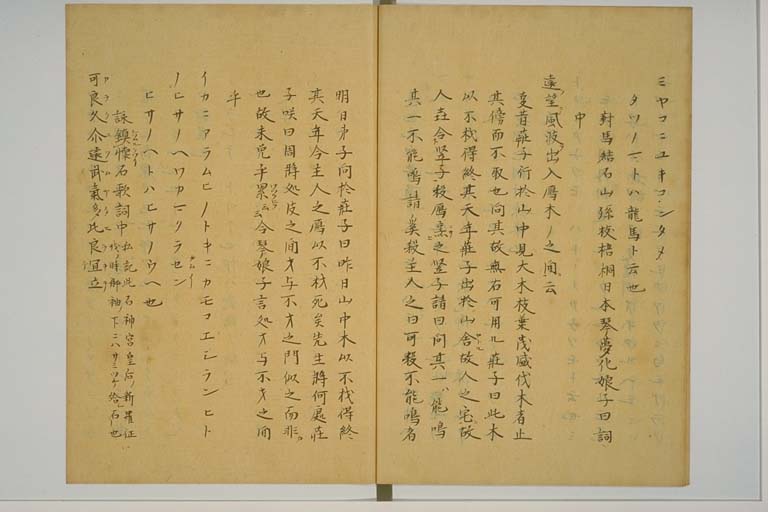 ミヤコニユキコンタメ
タツノマトハ龍馬ト云也
對馬結石山孫枝梧桐日本琴夢化娘子曰詞
中
遠望風波出入鴈木ノ之間云
莊子行於山中見大木枝葉茂盛伐木者止
其傍而不取也問其故無石可用儿莊子曰此木
以不材得終其天年莊子出於山舍故人之宅故
人喜令竪子殺鴈烹之竪子請曰問其一ハ能鳴
其一不能鳴請奚殺主人之曰可殺不能鳴者
明日弟子問於莊子曰昨日山中木以不材得終
其天年今主人之鴈以不材死矣先生將何處莊
子咲曰周將処皮之間才与不才之門似之而非
也故未免乎累云云今琴娘子言処才与不才之間
乎
イカニアラムヒノトキニカモコエシランヒト
ノヒサノヘワカマクラセン
ヒサノヘトハヒサノウヘ也
詠鎮懷石歌詞中
私記此石神宮皇后ノ新羅征ハ
伐ノ時御袖ノ下ニハサミツケ給石也
可良久介遠武氣多比良宜立